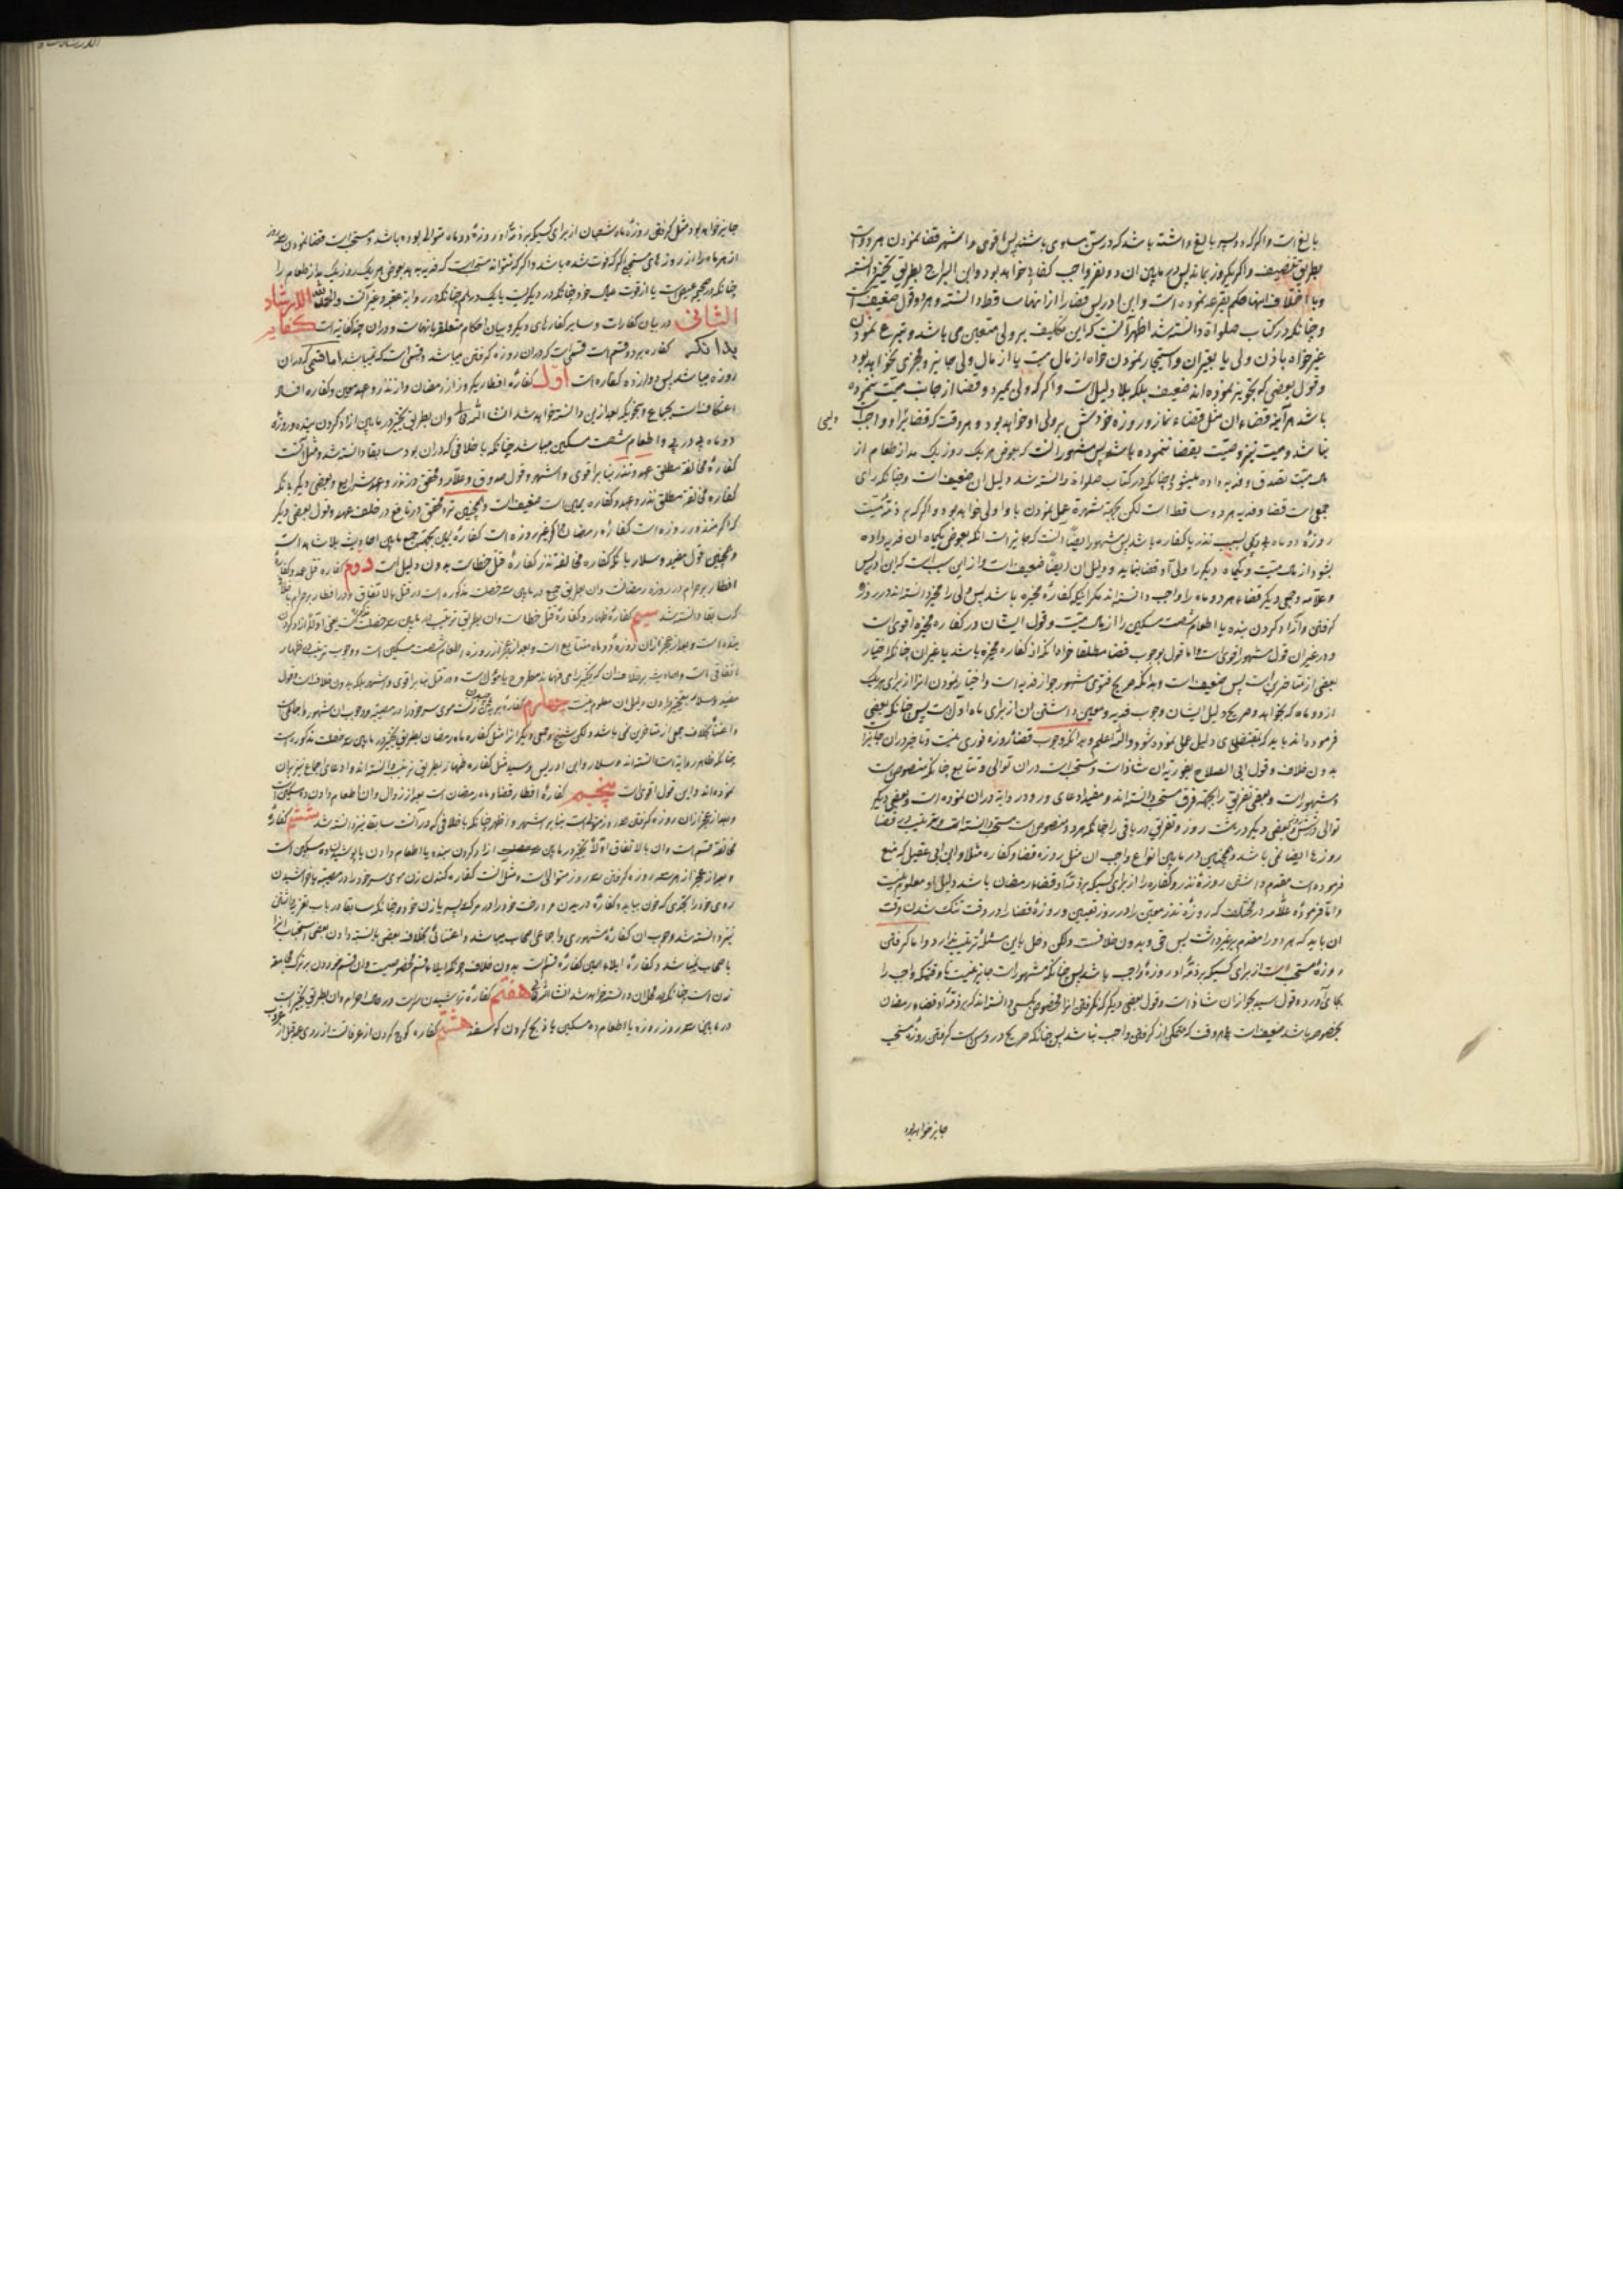 بالغ است و اگر که دو پسر بالغ داشته باشد که در سن مساوی باشند پس اقوی و اشهر قضا نمودن هر دو است
بطریق تنصیف و اگر یکروز بماند پس در مابین ان دو نفر واجب کفایه خواهد بود و ابن البراج بطریق تخییر دانسته
و با اختلاف اینها حکم بقرعه نموده است و ابن ادریس قضا را از اینها ساقط دانسته و هر دو قول ضعیف است
و چنانکه در کتاب صلواة دانسته شد اظهر آنست که این تکلیف بر ولی متعین می باشد و تبرع نمودن
غیر خواه باذن ولی یا بغیر ان و استیجار نمودن خواه از مال میت یا از مال ولی جایز و مجزی نخواهد بود
و قول بعضی که تجویز نموده اند ضعیف بلکه بلا دلیل است و اگر که ولی بمیرد و قضا از جانب میت ننموده
باشد هر آینه قضاء ان مثل قضاء نماز و روزه خودش بر ولی او خواهد بود و هر وقت که قضا بر او واجب
نباشد و میت نیز وصیت بقضا ننموده باشد پس مشهور انست که بعوض هر یک روز یک مد از طعام از
مال میت تصدق و فدیه داده میشود چنانکه در کتاب صلواة دانسته شد دلیل ان ضعیف است و چنانکه رای
جمعی است قضا و فدیه هر دو ساقط است لکن بجهة شهرة عمل نمودن با و اولی خواهد بود و اگر که بر ذمۀ میت
روزۀ دو ماه پی در پی بسبب نذر یا کفاره باشد پس مشهور ایضاً انست که جایز است انکه بعوض یکماه ان فدیه داده
بشود از مال میت و یکماه دیگر را ولی او قضا نماید و دلیل ان ایضاً ضعیف است و از این سبب است که ابن ادریس
و علامه و جمعی دیگر قضاء هر دو ماه را واجب دانسته اند مگر انکه کفارۀ مخیره باشد پس ولی را مخیر دانسته اند در روزه
گرفتن و آزاد کردن بنده یا اطعام شصت مسکین را از مال میت و قول ایشان در کفاره مخیره اقوی است
و در غیر ان قول مشهور اقوی است و اما قول بوجوب قضا مطلقا خواه انکه از کفاره مخیره باشد یا غیر ان چنانکه اختیار
بعضی از متاخرین است پس ضعیف است و بدانکه صریح فتوی مشهور جواز فدیه است و اختیار نمودن انرا از برای هر یک
از دو ماه که بخواهد و صریح دلیل ایشان وجوب فدیه و معین داشتن ان از برای ماه اول است پس چنانکه بعضی
فرموده اند باید که بمقتضای دلیل عمل نموده شود والله اعلم و بدانکه وجوب قضاء روزه فوری نیست و تاخیر در ان جایز است
بدون خلاف و قول ابی الصلاح بفوریة ان شاذ است و مستحب است در ان توالی و تتابع چنانکه منصوص است
و مشهور است و بعضی تفریق را بجهة فرق مستحب دانسته اند و مفید ادعای ورود روایة در ان نموده است و بعضی دیگر
توالی در شش روز و بعضی دیگر در هشت روز و تفریق در باقی را چنانکه هر دو منصوص است مستحب دانسته اند و ترتیب در قضا
روزها ایضا نمی باشد و همچنین در مابین انواع واجب ان مثل روزه قضا و کفاره مثلا و ابن ابی عقیل که منع
فرموده است مقدم داشتن روزۀ نذر و کفاره را از برای کسیکه بر ذمۀ او قضاء رمضان باشد دلیل او معلوم نیست
و انچه فرموده علامه در مختلف که روزۀ نذر معین را در روز تعیین و روزۀ قضا را در وقت تنک شدن وقت
ان باید که هر دو را مقدم بر غیر داشت پس حق و بدون خلافست ولکن دخل باین مسئلۀ ترتیب ندارد و اما گرفتن
روزۀ مستحب است از برای کسیکه بر ذمۀ او روزۀ واجب باشد پس چنانکه مشهور است جایز نیست تا وقتیکه واجب را
بجای آورد و قول سید بجواز ان شاذ است و قول بعضی دیگر که نگرفتن انرا مخصوص بکسی دانسته اند که بر ذمۀ او قضاء رمضان
بخصوصه باشد ضعیف است و هر وقت که متمکن از گرفتن واجب نباشد پس چنانکه صریح دروس است گرفتن روزۀ مستحب
جایز خواهد بود
جایز خواهد بود مثل گرفتن روزۀ ماه شعبان از برای کسیکه بر ذمۀ او روزۀ دو ماه متوالی بوده باشد و مستحب است قضا نمودن سه روز
از هر ماه را از روزهای مستحبی اگر که فوت شده باشد و اگر که نتواند مستحب است که فدیه بدهد بعوض هر یک روز یک مد از طعام را
چنانکه در صحیح عیص است یا از قوت عیال خود چنانکه در دیگریست یا یک درهم چنانکه در روایة عقبه و غیر آنست والحمد لله الارشاد
الثانی در بیان کفارات و سایر کفارهای دیگر و بیان احکام متعلق باینهاست و در ان چند کفایة است کفایه
بدانکه کفاره بر دو قسم است قسمی است که در ان روزه گرفتن میباشد و قسمی است که نمیباشد اما قسمی که در ان
روزه میباشد پس دوازده کفاره است اول کفارۀ افطار یکروز از رمضان و از نذر و عهد معین و کفاره افساد
اعتکاف است بجماع و بنحویکه بعد از این دانسته خواهد شد انشاالله تعالی و ان بطریق تخییر در مابین ازاد کردن بنده و روزۀ
دو ماه پی در پی و اطعام شصت مسکین میباشد چنانکه با خلافی که در ان بود سابقا دانسته شد و مثل آنست
کفارۀ مخالفة مطلق عهد و نذر بنا بر اقوی و اشهر و قول صدوق و علامه و محقق در نذر و عهد شرایع و بعضی دیگر بانکه
کفاره مخالفة مطلق نذر و عهد و کفاره یمین است ضعیف است و همچنین تردد محقق در نافع در خلف عهد و قول بعضی دیگر
که اگر منذور روزه است کفاره رمضان و اگر غیر روزه است کفارۀ یمین بجهة جمع مابین احادیث بلا شاهد است
و همچنین قول مفید و سلار بانکه کفاره مخالفة نذر کفارۀ قتل خطاست بدون دلیل است دوم کفاره قتل عمد و کفارۀ
افطار بحرام در روزه رمضانست و ان بطریق جمع در مابین سه خصلت مذکوره است در قتل بالاتفاق و در افطار بحرام بخلاف
که سابقا دانسته شد سیم کفارۀ ظهار و کفارۀ قتل خطاست و ان بطریق ترتیب در مابین سه خصلت است یعنی اولاً ازاد کردن
بنده است و بعد از عجز از ان روزۀ دو ماه متتابع است و بعد از عجز از روزه اطعام شصت مسکین است و وجوب ترتیب در ظهار
اتفاقی است و در قتل بنا بر اقوی و اشهر بلکه بدون خلاف است و قول
مفید و سلار بتخییر در ان دلیل ان معلوم نیست چهارم کفارۀ بریدن زنست موی سر خود را در مصیبة و وجوب ان مشهور
بخلاف جمعی از متاخرین نمی باشد ولکن شیخ و جمعی دیگر انرا مثل کفاره ماه رمضان بطریق تخییر در مابین سه خصلت مذکوره است
چنانکه ظاهر روایة است دانسته اند و سلار و ابن ادریس و سید مثل کفاره ظهار بطریق ترتیب دانسته اند و ادعای اجماع نیز بر ان
نموده اند و این قول اقوی است پنجم کفارۀ افطار قضاء ماه رمضان است بعد از زوال و ان اطعام دادن ده مسکین است
و بعد از عجز از ان روزه گرفتن سه روز متوالی است بنا بر اشهر و اظهر چنانکه با خلافی که در آنست سابقا نیز دانسته شد ششم کفارۀ
مخالفة قسم است و ان بالاتفاق اولاً تخییر در مابین ازاد کردن بنده یا اطعام دادن یا پوشیدن ده مسکین است
و بعد از عجز از هر سه روزه گرفتن سه روز متوالی است و مثل انست کفاره کندن زن موی سر خود را در مصیبة یا خراشیدن
روی خود را بنحوی که خون بیاید و کفارۀ دریدن مرد رخت خود را در مرک پسر یا زن خود و چنانکه سابقا در باب تعزیة
نیز دانسته شد وجوب ان کفارۀ مشهوری و اجماعی اصحاب میباشد و اعتنائی بخلاف بعضی یا نسبة دادن بعضی استحباب انرا
باصحاب نمیباشد و کفارۀ ایلاء همین کفارۀ قسم است بدون خلاف چونکه ایلاء قسم مخصوصیست و ان قسم خوردن بر ترک مجامعۀ
زن است چنانکه در محل ان دانسته خواهد شد انشاءالله تعالی هفتم کفارۀ تراشیدن سر است در حال احرام و ان بطریق تخییر است
در مابین سه روز روزه یا اطعام ده مسکین یا ذبح کردن گوسفند هشتم کفاره کوچ کردن از عرفاتست از روی عمد قبل از غروب